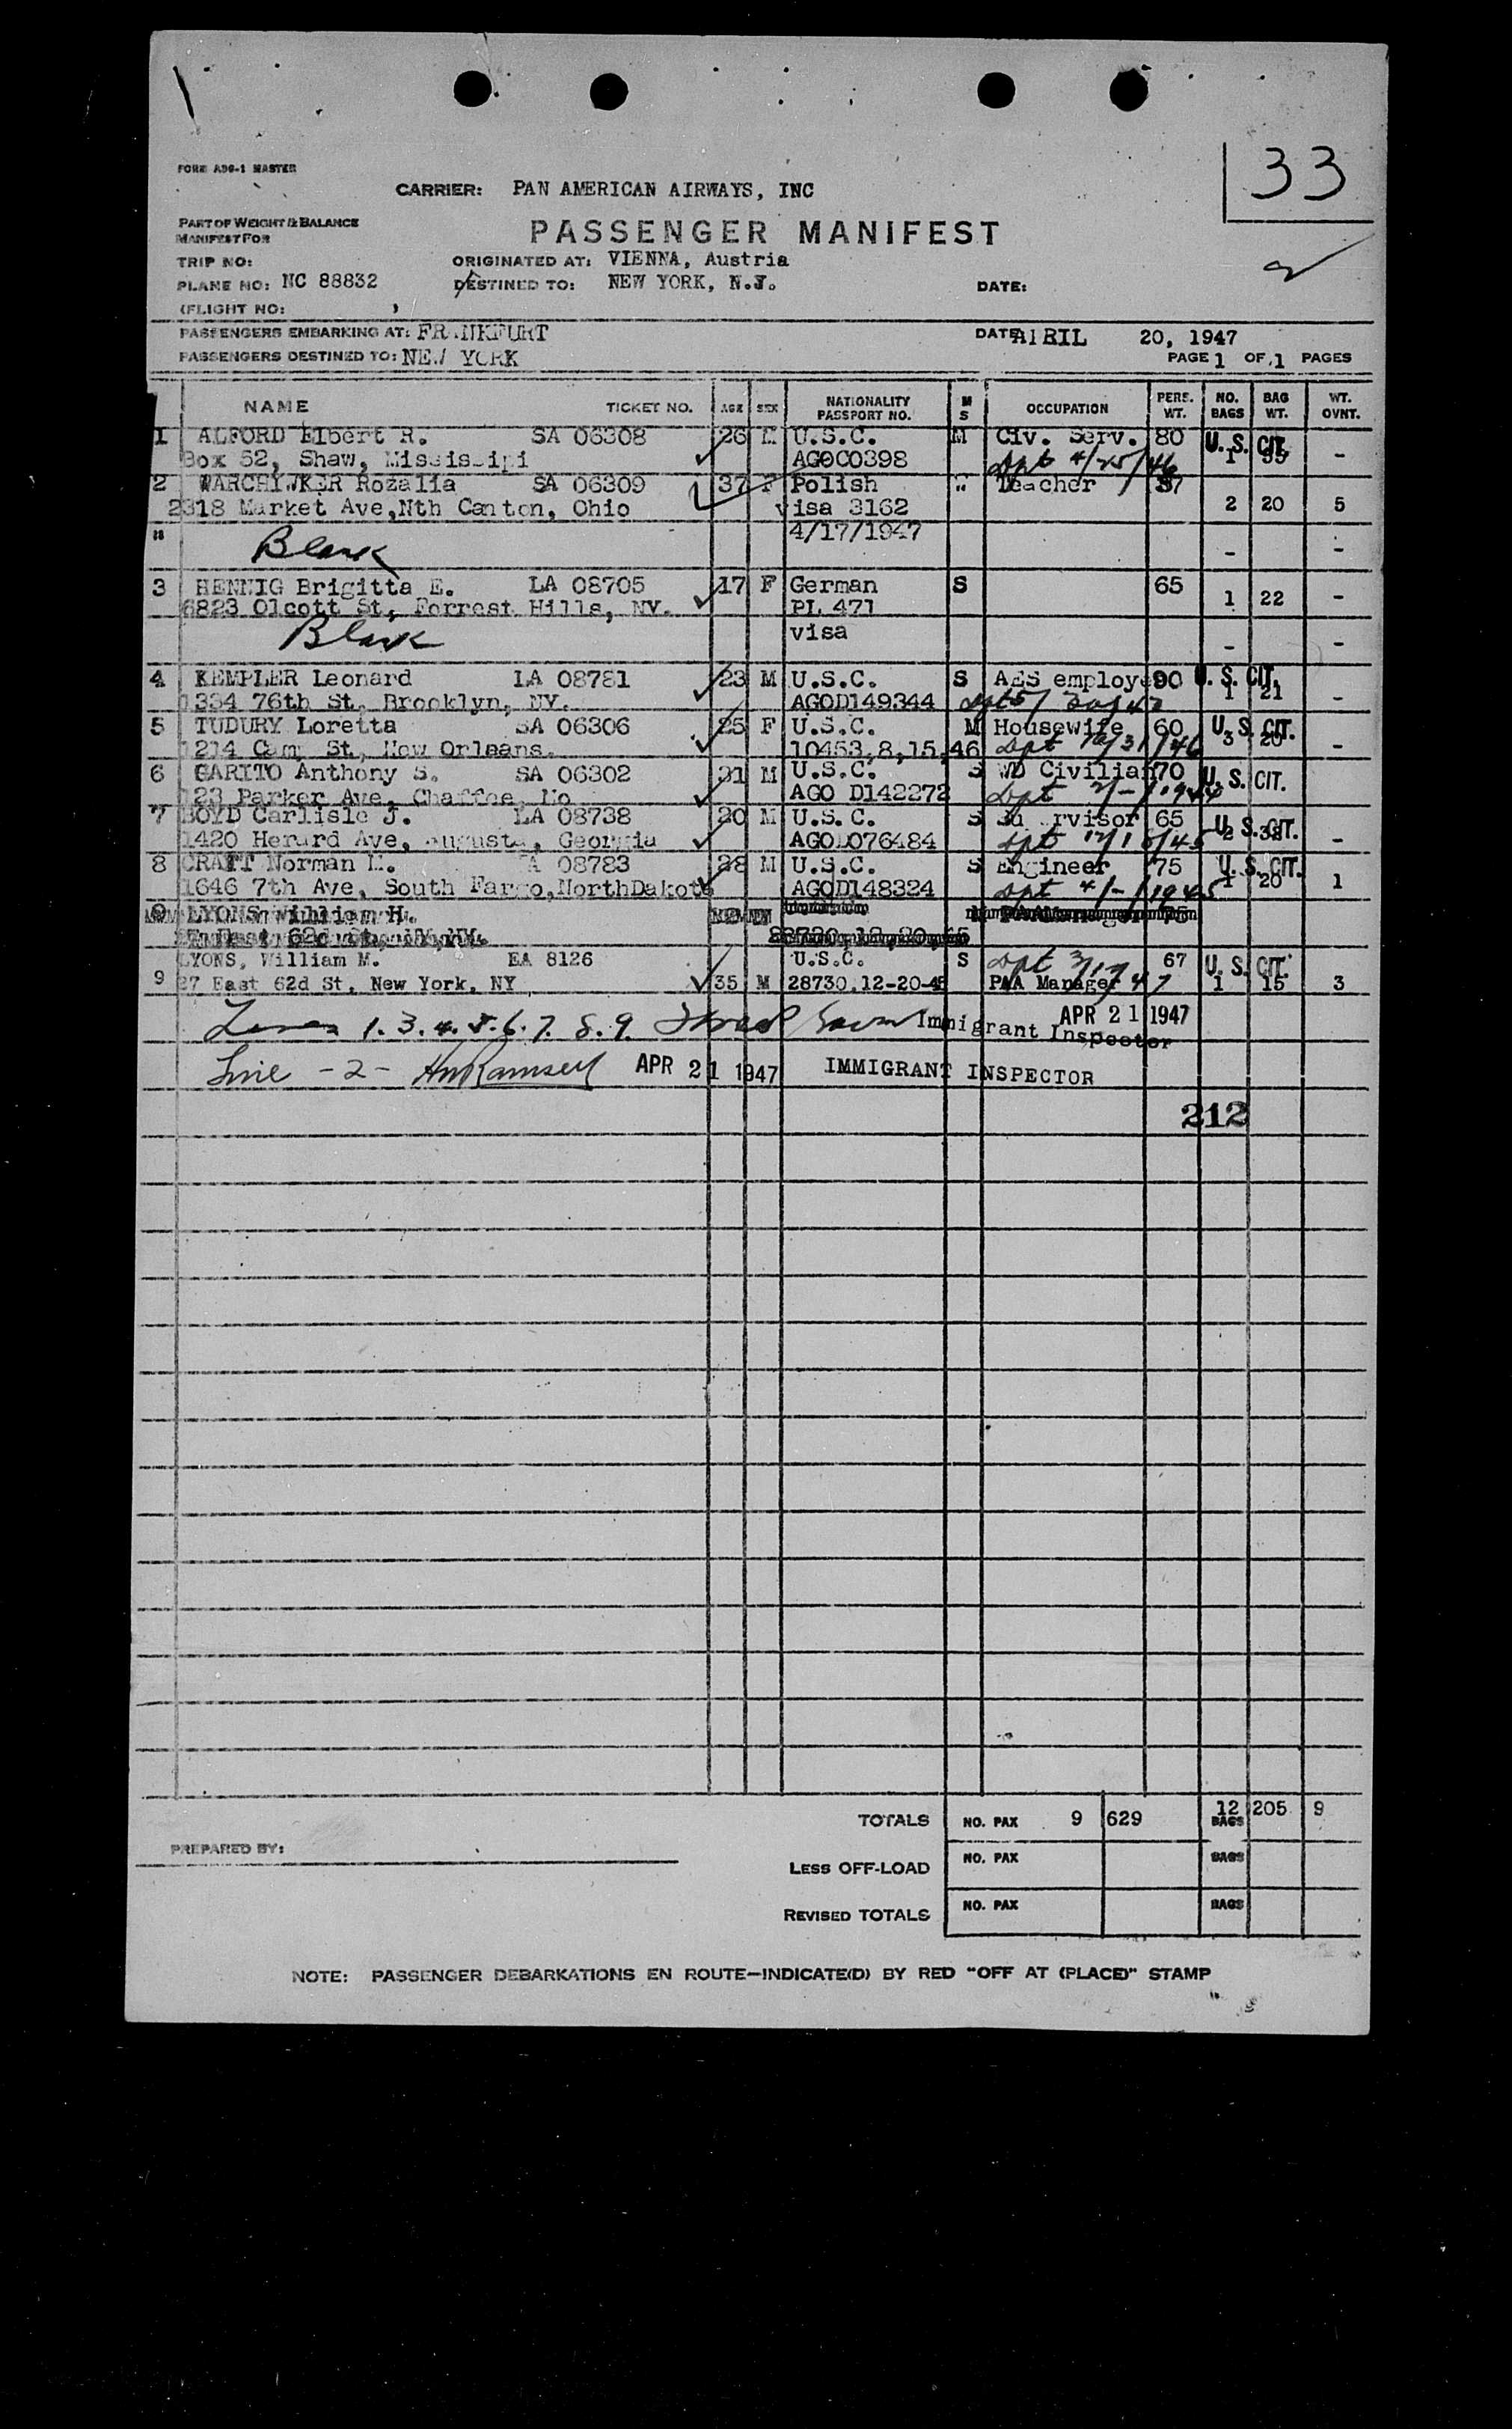 33
FORM ADG-1 MASTER
CARRIER: PAN AMERICAN AIRWAYS, INC
PART OF WEIGHT & BALANCE
MANIFEST FOR
PASSENGER MANIFEST
TRIP NO: ORIGINATED AT: VIENNA, Austria
PLANE NO: NC 88832 DESTINED TO: NEW YORK, N.J. DATE:
(FLIGHT NO: )
PASSENGERS EMBARKING AT: FRANKFURT DATE APRIL 20, 1947
PASSENGERS DESTINED TO: NEW YORK PAGE 1 OF 1 PAGES
NAME TICKET NO. AGE SEX NATIONALITY PASSPORT NO. M S OCCUPATION PERS. WT. NO. BAGS BAG WT. WT. OVNT.
1 ALFORD Elbert R. SA 06308 26 M U.S.C. M Civ. Serv. 80 U. S. CIT.
Box 52, Shaw, Mississipi AGOC0398 dpt 4/25/46 1 -
2 WARCHIWKER Rozalia SA 06309 37 F Polish " Teacher 57
2318 Market Ave,Nth Canton, Ohio visa 3162 2 20 5
" Blank 4/17/1947 - -
3 HENNIG Brigitta E. LA 08705 17 F German S 65
6823 Olcott St, Forrest Hills, NY. PI. 471 1 22 -
Blank visa - -
4 KEMPLER Leonard LA 08781 23 M U.S.C. S AES employee 90 U. S. CIT.
1334 76th St, Brooklyn, NY. AGOD149344 1 21 -
5 TUDURY Loretta SA 06306 25 F U.S.C. M Housewife 60 U. S. CIT.
1214 Camp St, New Orleans. 10453,8,15,46 dpt 10/31/46 3 20 -
6 GARITO Anthony S. SA 06302 31 M U.S.C. S WD Civilian 70 U. S. CIT.
123 Parker Ave, Chaffee, Mo AGO D142272 dpt
7 BOYD Carlisle J. LA 08738 20 M U.S.C. S Supervisor 65 U. S. CIT.
1420 Herard Ave, Augusta, Georgia AGOD076484 dpt 2 38 -
8 CRAFT Norman M. A 08783 28 M U.S.C. S Engineer 75 U. S. CIT.
1646 7th Ave, South Fargo,NorthDakota AGOD148324 dpt 4/-/1945 1 20 1
9 LYONS William H. 75
LYONS, William M. EA 8126 U.S.C. S dpt 3/17/47 67 U. S. CIT.
9 27 East 62d St, New York, NY 35 M 28730.12-20-45 PAA Manager 1 15 3
Lines 1. 3. 4. 5. 6. 7. 8. 9. Immigrant Inspector APR 21 1947
Line -2- HMRamsell APR 21 1947 IMMIGRANT INSPECTOR
212
TOTALS NO. PAX 9 629 12 BAGS 205 9
PREPARED BY:
LESS OFF-LOAD NO. PAX BAGS
REVISED TOTALS NO. PAX BAGS
NOTE: PASSENGER DEBARKATIONS EN ROUTE—INDICATE(D) BY RED "OFF AT (PLACE)" STAMP